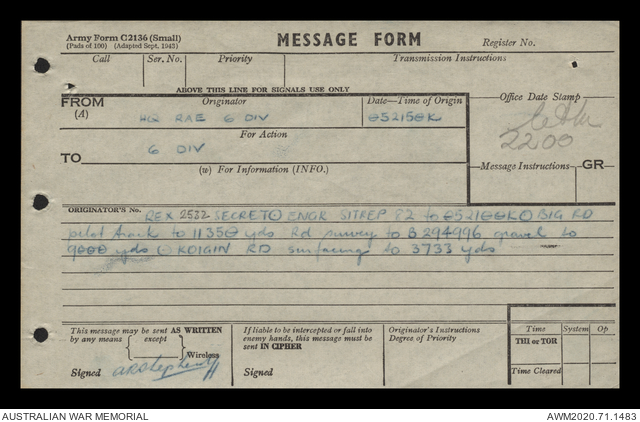 Army Form C2136 (Small)
(Pads of 100) (Adapted Sept. 1943)
MESSAGE FORM
Register No.
Call
Ser. No.
Priority
Transmission Instructions
ABOVE THIS LINE FOR SIGNALS USE ONLY
FROM
(A)
Originator
HQ RAE 6 DIV
Date—Time of Origin
052150K
Office Date Stamp
2200
For Action
TO
6 DIV
(w) For Information (INFO.)
Message Instructions
GR
ORIGINATOR'S No.
REX 2532 SECRET ⊙ ENGR SITREP 82 to 052100K ⊙ BIG RD
pilot track to 11350 yds Rd survey to B 294996 gravel to
9000 yds ⊙ KOIGIN RD surfacing to 3733 yds
This message may be sent AS WRITTEN
by any means
except
Wireless
Signed
If liable to be intercepted or fall into
enemy hands, this message must be
sent IN CIPHER
Signed
Originator's Instructions
Degree of Priority
Time
System
Op
THI or TOR
Time Cleared
AUSTRALIAN WAR MEMORIAL
AWM2020.71.1483